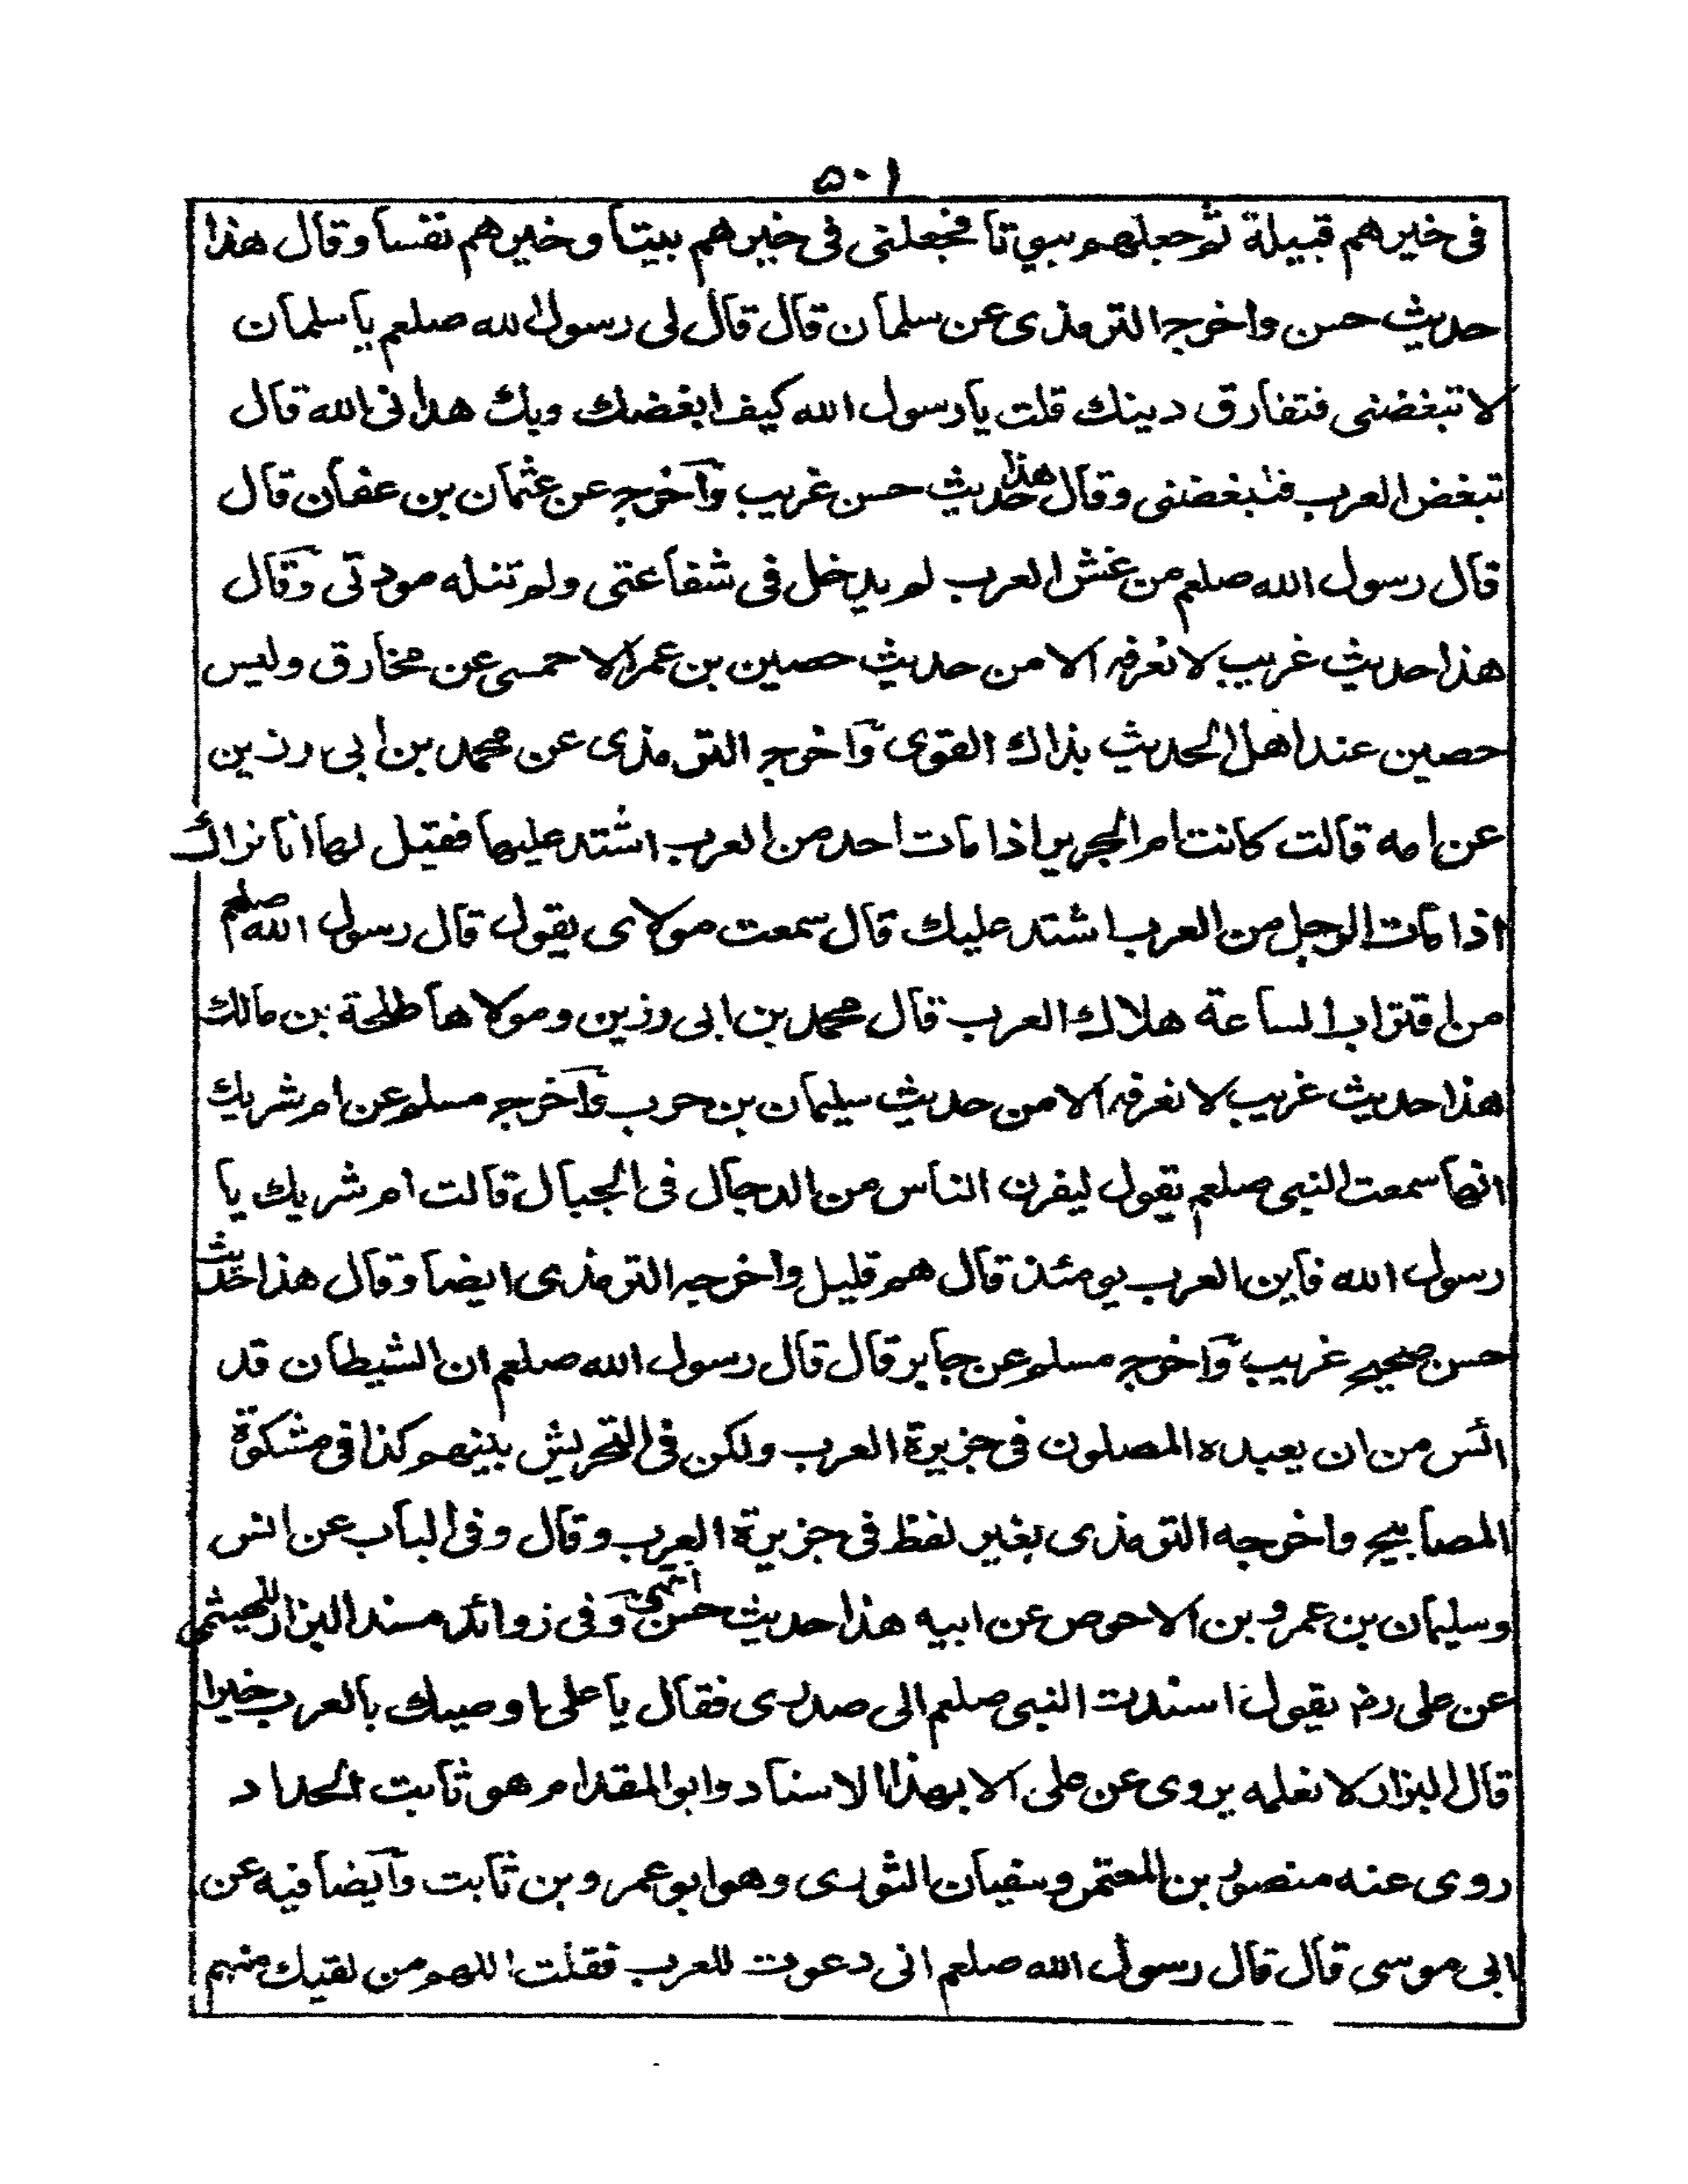 ٥٠١
فى خيرهم قبيلة ثم جعلهم بيوتا فجعلنى فى خيرهم بيتا وخيرهم نفسا وقال هذا
حديث حسن واخرج الترمذى عن سلمان قال قال لى رسول الله صلعم يا سلمان
لا تبغضنى فتفارق دينك قلت يا رسول الله كيف ابغضك وبك هدانى الله قال
تبغض العرب فتبغضنى وقال هذا حديث حسن غريب وآخرج عن عثمان بن عفان قال
قال رسول الله صلعم من غش العرب لم يدخل فى شفاعتى ولم تنله مودتى وقال
هذا حديث غريب لا نعرفه الا من حديث حصين بن عمر الاحمسى عن مخارق وليس
حصين عند اهل الحديث بذاك القوى وآخرج الترمذى عن محمد بن ابى رزين
عن امه قالت كانت ام الحرير اذا مات احد من العرب اشتد عليها فقيل لها انا نراك
اذا مات الرجل من العرب اشتد عليك قال سمعت مولاى يقول قال رسول الله صلعم
من اقتراب الساعة هلاك العرب قال محمد بن ابى رزين ومولاها طلحة بن مالك
هذا حديث غريب لا نعرفه الا من حديث سليمان بن حرب وآخرج مسلم عن ام شريك
انها سمعت النبى صلعم يقول ليفرن الناس من الدجال فى الجبال قالت ام شريك يا
رسول الله فاين العرب يومئذ قال هم قليل واخرجه الترمذى ايضا وقال هذا حديث
حسن صحيح غريب وآخرج مسلم عن جابر قال قال رسول الله صلعم ان الشيطان قد
ائس من ان يعبده المصلون فى جزيرة العرب ولكن فى التحريش بينهم كذا فى مشكوة
المصابيح واخرجه الترمذى بغير لفظ فى جزيرة العرب وقال وفى الباب عن انس
وسليمان بن عمرو بن الاحوص عن ابيه هذا حديث حسن انتهى وفى زوائد مسند البزار للهيثمى
عن على رض يقول اسندت النبى صلعم الى صدرى فقال يا على اوصيك بالعرب خيرا
قال البزار لا نعلمه يروى عن على الا بهذا الاسناد وابو المقدام هو ثابت الحداد
روى عنه منصور بن المعتمر وسفيان الثورى وهو ابو عمرو بن ثابت وآيضا فيه عن
ابى موسى قال قال رسول الله صلعم انى دعوت للعرب فقلت اللهم من لقيك منهم